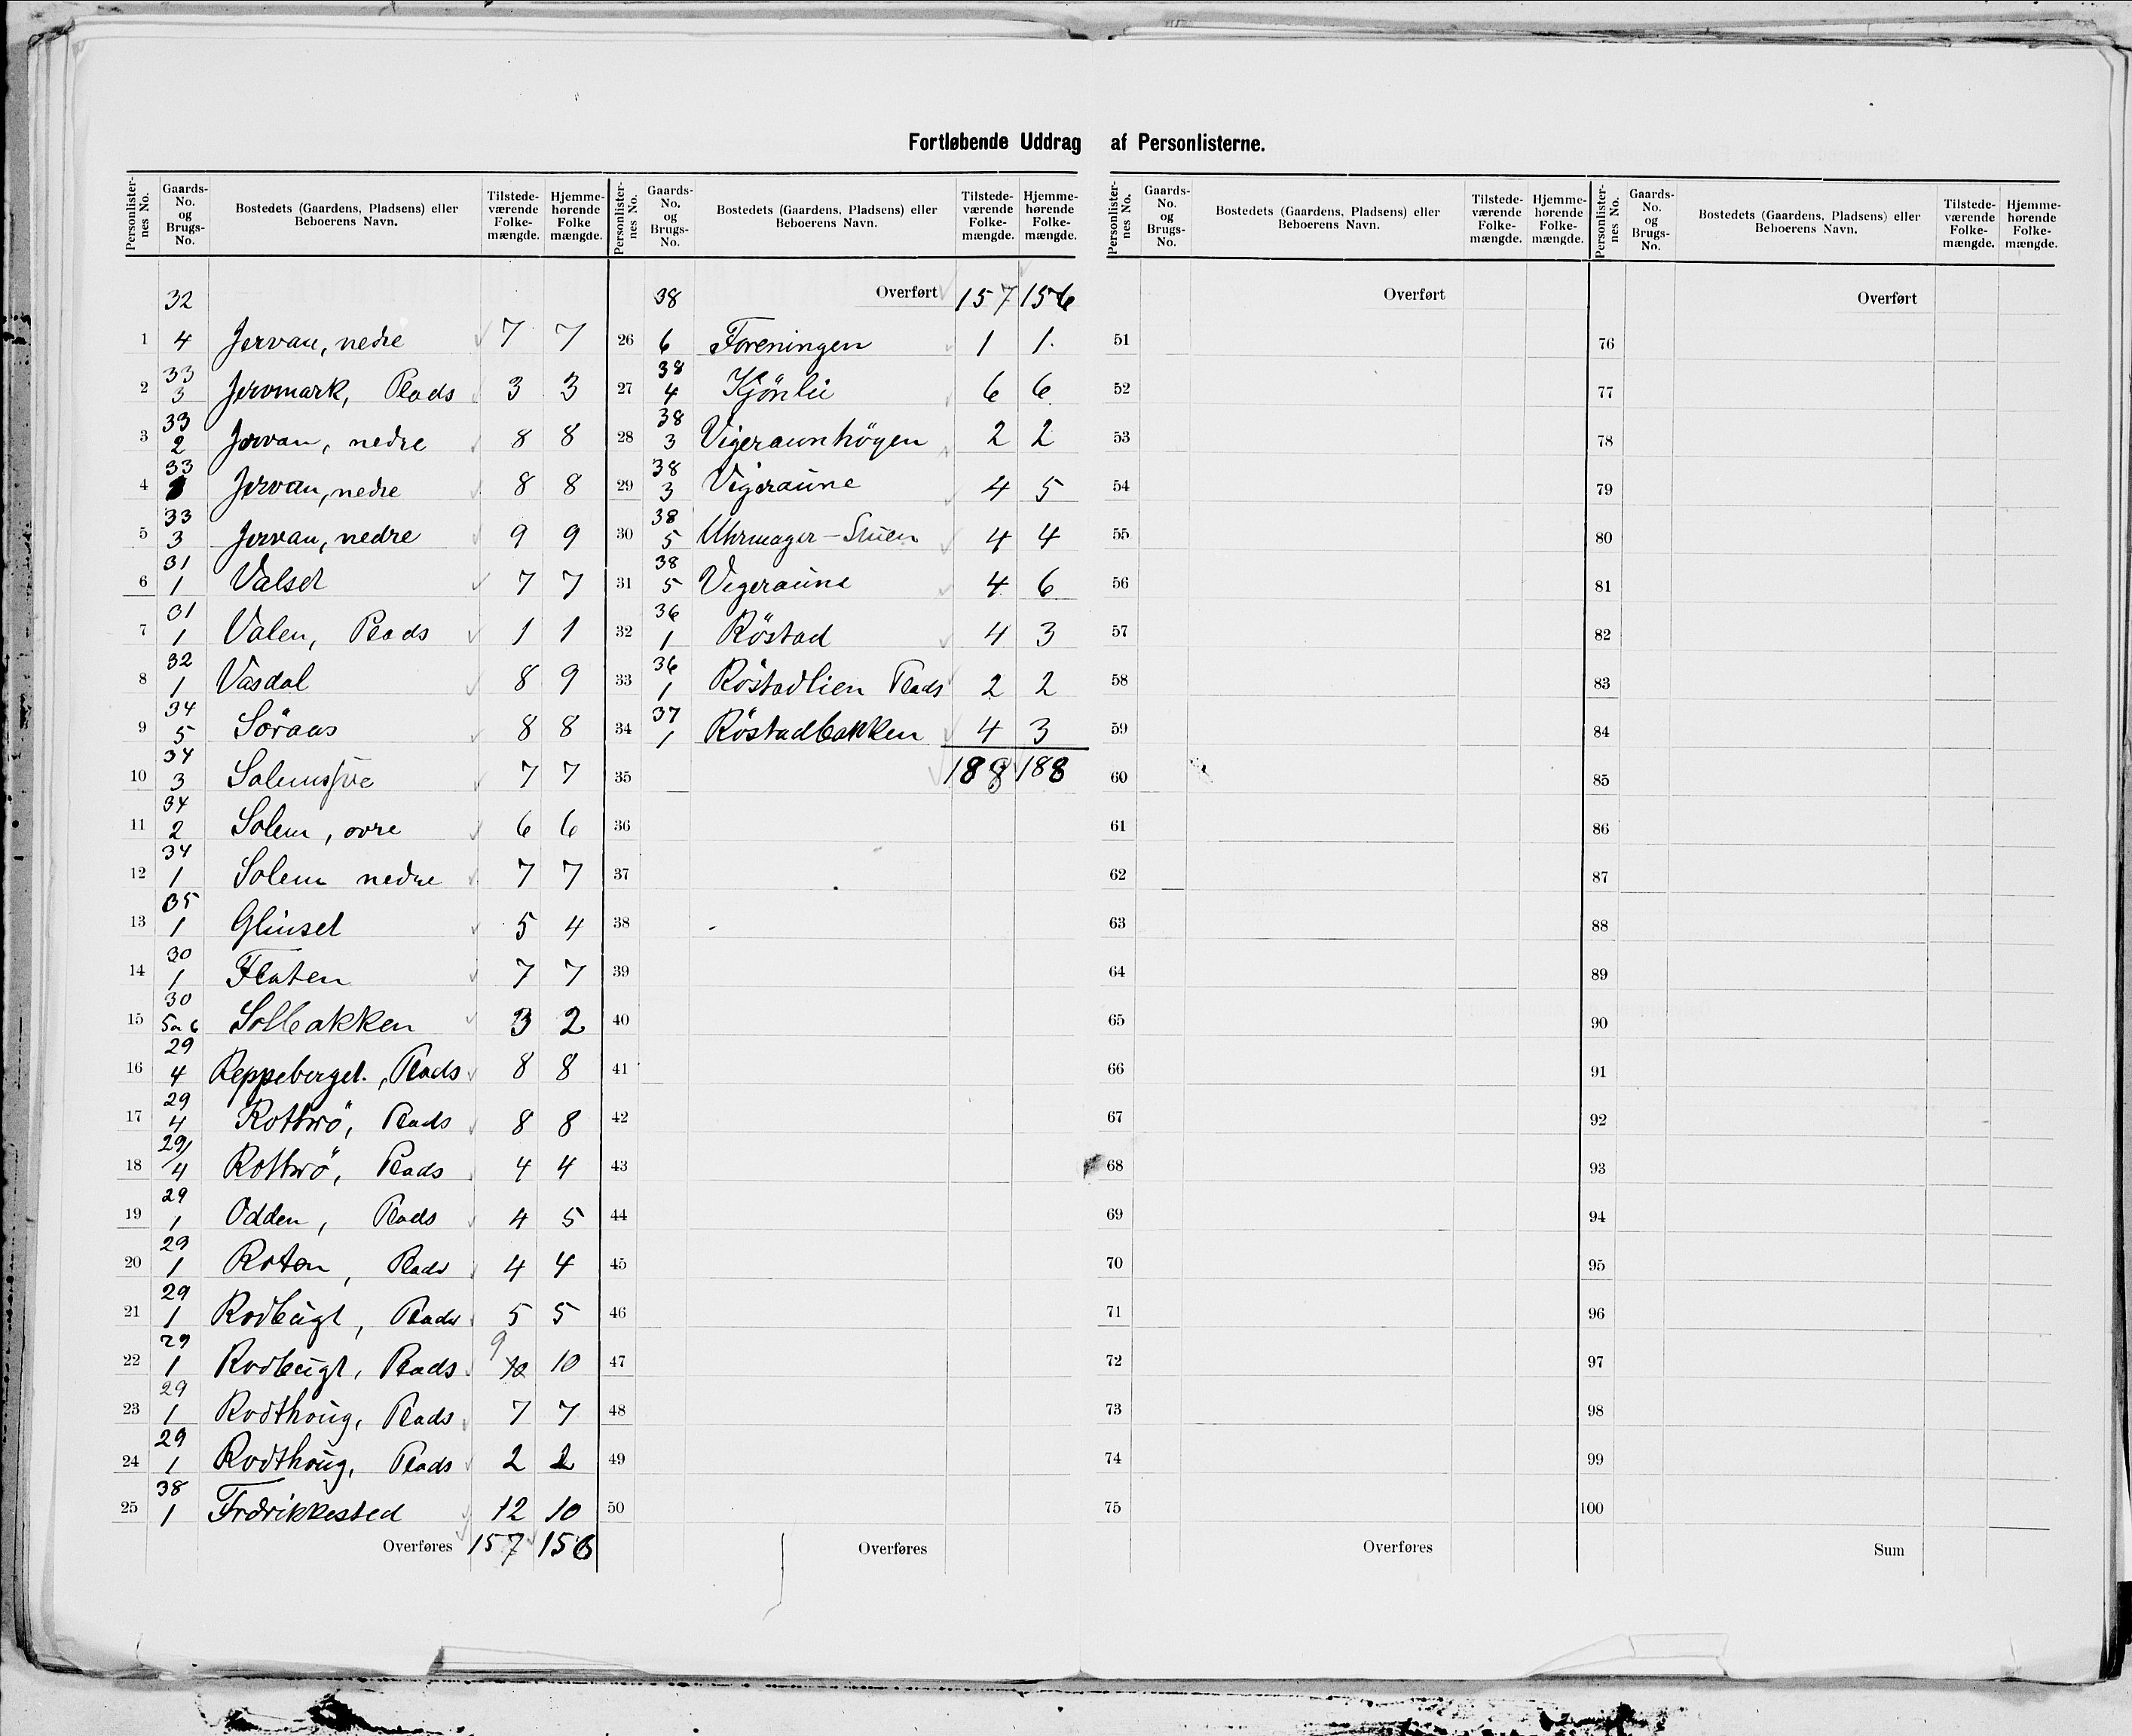 Fortløbende Uddrag af Personlisterne.
Personlisternes No. Gaards-No. og Brugs-No. Bostedets (Gaardens, Pladsens) eller Beboerens Navn. Tilstedeværende Folkemængde. Hjemmehørende Folkemængde.
32
1 4 Jervan, nedre 7 7
2 33 3 Jervmark, Plads 3 3
3 33 2 Jervan, nedre 8 8
4 33 Jervan, nedre 8 8
5 33 3 Jervan, nedre 9 9
6 31 1 Valset 7 7
7 31 1 Valen, Plads 1 1
8 32 1 Vasdal 8 9
9 34 5 Söraas 8 8
10 34 3 7 7
11 34 2 Solem, ovre 6 6
12 34 1 Solem nedre 7 7
13 35 1 Glinset 5 4
14 30 1 Flaten 7 7
15 30 5 a 6 Solbakken 3 2
16 29 4 Reppeberget, Plads 8 8
17 29 4 Rottwö, Plads 8 8
18 29/4 Rottwö, Plads 4 4
19 29 1 Odden, Plads 4 5
20 29 1 Roten, Plads 4 4
21 29 1 Rodbugt, Plads 5 5
22 29 1 Rodbugt, Plads 9 10 10
23 29 1 Rodthoug, Plads 7 7
24 29 1 Rodthoug, Plads 2 2
25 38 1 Fredrikkested 12 10
Overføres 157 156
Personlisternes No. Gaards-No. og Brugs-No. Bostedets (Gaardens, Pladsens) eller Beboerens Navn. Tilstedeværende Folkemængde. Hjemmehørende Folkemængde.
38 Overført 157 156
26 6 Foreningen 1 1.
27 38 4 Kjönli 6 6
28 38 3 Vigeraunhögen 2 2
29 38 3 Vigeraune 4 5
30 38 5 Uhrmager-Stuen 4 4
31 38 5 Vigeraune 4 6
32 36 1 Röstad 4 3
33 36 1 Röstadlien Plads 2 2
34 37 1 Röstadbakken 4 3
35 188 188
36
37
38
39
40
41
42
43
44
45
46
47
48
49
50
Overføres
Personlisternes No. Gaards-No. og Brugs-No. Bostedets (Gaardens, Pladsens) eller Beboerens Navn. Tilstedeværende Folkemængde. Hjemmehørende Folkemængde.
Overført
51
52
53
54
55
56
57
58
59
60
61
62
63
64
65
66
67
68
69
70
71
72
73
74
75
Overføres
Personlisternes No. Gaards-No. og Brugs-No. Bostedets (Gaardens, Pladsens) eller Beboerens Navn. Tilstedeværende Folkemængde. Hjemmehørende Folkemængde.
Overført
76
77
78
79
80
81
82
83
84
85
86
87
88
89
90
91
92
93
94
95
96
97
98
99
100
Sum